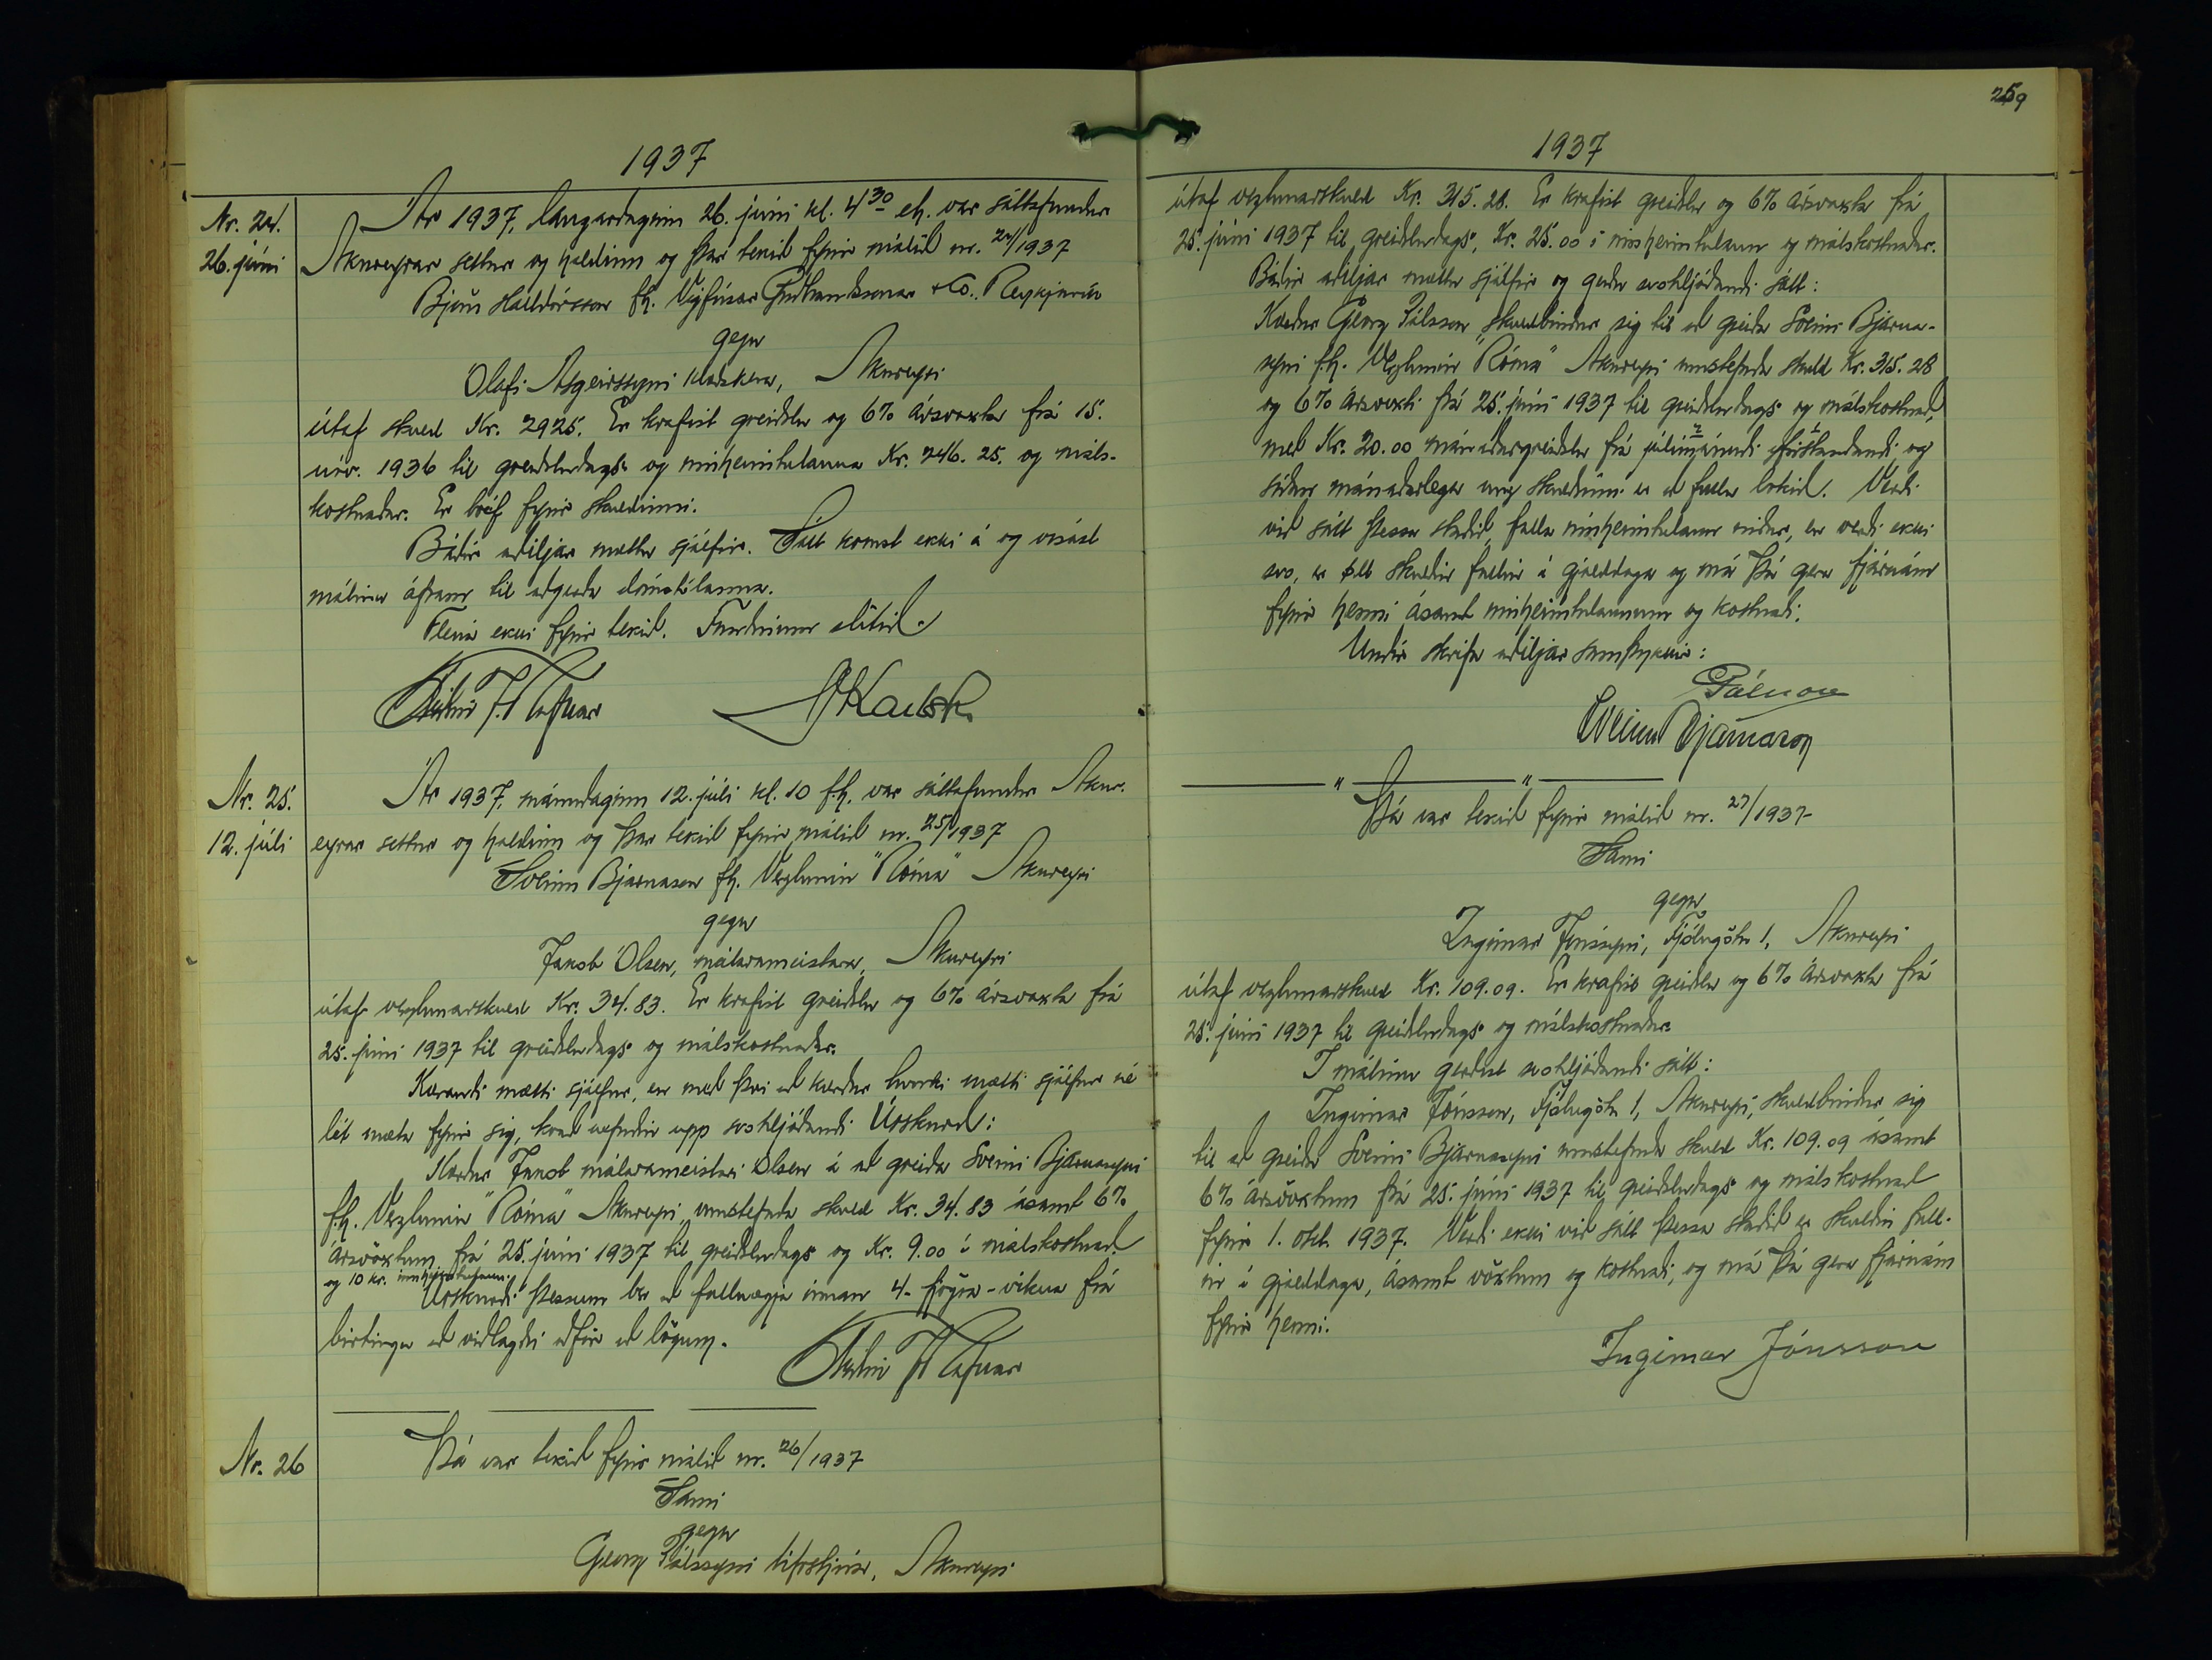 1937
Nr. 24.
26. júní
Ár 1937, laugardaginn 26. júní kl. 4 30 eh. var sáttafundur
Akureyrar settur og haldinn og þar tekið fyrir málið nr. 24/1937
Björn Halldórsson fh. Vigfúsar Guðbrandssonar & Co. Reykjavík
gegn
Ólafi Ásgeirssyni klæðskera, Akureyri
útaf skuld Kr. 2925. Er krafist greiðslu og 6% ársvaxta frá 15.
nóv. 1936 til greiðsludags og innheimtulauna Kr. 246.25. og máls-
kostnaðar. Er bréf fyrir skuldinni.
Báðir aðiljar mættu sjálfir. Sátt komst ekki á og vísast
málinu áfram til aðgerða dómstólanna.
Fleira ekki fyrir tekið. Fundinum slitið.
Nr. 25.
12. júlí
Ár 1937, mánudaginn 12. júlí kl. 10 f.h. var sáttafundur Akur-
eyrar settur og haldinn og þar tekið fyrir málið nr. 25/1937
Sveinn Bjarnason fh. Verzlunin "Róma" Akureyri
gegn
Jakob Olsen, málarameistara, Akureyri
útaf verzlunarskuld Kr. 34.83. Er krafist greiðslu og 6% ársvaxta frá
25. júní 1937 til greiðsludags og málskostnaðar.
Kærandi mætti sjálfur, en með því að kærður hvorki mætti sjálfur né
lét mæta fyrir sig, kvað nefndin upp svohljóðandi Úrskurð:
Kærður Jakob málarameistari Olsen á að greiða Sveini Bjarnasyni
f.h. Verzlunin "Róma" Akureyri umstefnda skuld Kr. 34.83 ásamt 6%
ársvöxtum frá 25. júní 1937 til greiðsludags og Kr. 9.00 í málskostnað
og 10 kr. innheimtulaun.
Úrskurði þessum ber að fullnægja innan 4 - fjögra - vikna frá
birtingu að viðlagðri aðför að lögum.
Nr. 26
Þá var tekið fyrir málið nr. 26/1937
Sami
gegn
Georg Pálssyni bifrstjóra, Akureyri
259
1937
útaf verzlunarskuld Kr. 315.28. Er krafist greiðslu og 6% ársvaxta frá
25. júní 1937 til greiðsludags, Kr. 25.00 í innheimtulaun og málskostnaðar.
Báðir aðiljar mættu sjálfir og gerðu svohljóðandi sátt:
Kærður Georg Pálsson skuldbindur sig til að greiða Sveini Bjarna-
syni f.h. Verzlunin "Róma" Akureyri umstefnda skuld Kr. 315.28
og 6% ársvexti frá 25. júní 1937 til greiðsludags og málskostnað,
með Kr. 20.00 mánaðargreiðslu frá júlímánuði og
síðan mánaðarlega unz skuldinni er að fullu lokið. Verði
við sátt þessa staðið, falla innheimtulaun niður, en verði ekki
svo, er öll skuldin fallin í gjalddaga og má þá gera fjárnám
fyrir henni ásamt innheimtulaunum og kostnaði.
Undir skrifa aðiljar samþykkir:
GPálsson
Sveinn Bjarnason
" "
Þá var tekið fyrir málið nr. 27/1937
Sami
gegn
Ingimar Jónssyni, Fjólugötu 1, Akureyri
útaf verzlunarskuld Kr. 109.09. Er krafist greiðslu og 6% ársvaxta frá
25. júní 1937 til greiðsludags og málskostnaðar.
Í málinu gerðist svohljóðandi sátt:
Ingimar Jónsson, Fjólugötu 1, Akureyri, skuldbindur sig
til að greiða Sveini Bjarnasyni umstefnda skuld Kr. 109.09 ásamt
6% ársvöxtum frá 25. júní 1937 til greiðsludags og málskostnað
fyrir 1. okt. 1937. Verði ekki við sátt þessa staðið er skuldin fall-
in í gjalddaga, ásamt vöxtum og kostnaði, og má þá gera fjárnám
fyrir henni.
Ingimar Jónsson